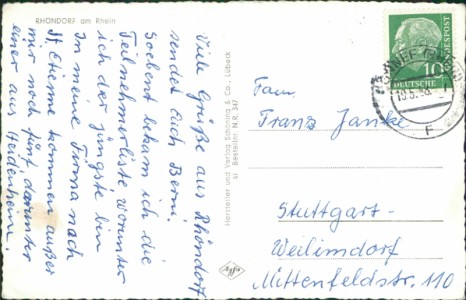 RHÖNDORF am Rhein
Viele Grüße aus Rhöndorf
sendet euch Berni.
Soebent bekam ich die
Teilnehmerliste worunter
ich der jüngste bin
In meine Firma nach
St. Etienne kommen außer
mir noch fünf, darunter
einer aus Heidenheim.
Hersteller und Verlag Schöning & Co., Lübeck
Bestellnr. N.R. 347
effy
DEUTSCHE BUNDESPOST
10
HONNEF
F
Fam.
Franz Janke
Stuttgart-
Weilimdorf
Mittenfeldstr. 110